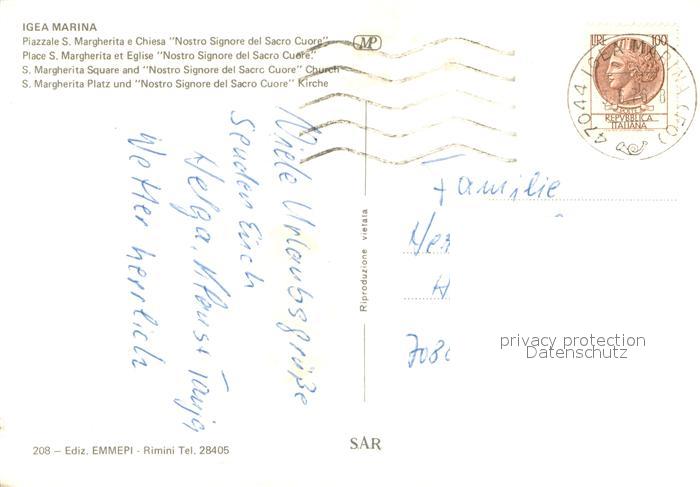 IGEA MARINA
Piazzale S. Margherita e Chiesa "Nostro Signore del Sacro Cuore"
Place S. Margherita et Eglise "Nostro Signore del Sacro Cuore."
S. Margherita Square and "Nostro Signore del Sacro Cuore" Church
S. Margherita Platz und "Nostro Signore del Sacro Cuore" Kirche
MP
LIRE 100
REPVBBLICA
ITALIANA
47044 IGEA MARINA (FO)
Viele Urlaubsgrüße
senden Euch
Helga, Klaus + Tanja
Wetter herrlich
Riproduzione vietata
Familie
708
privacy protection
Datenschutz
208 – Ediz. EMMEPI - Rimini Tel. 28405
SAR